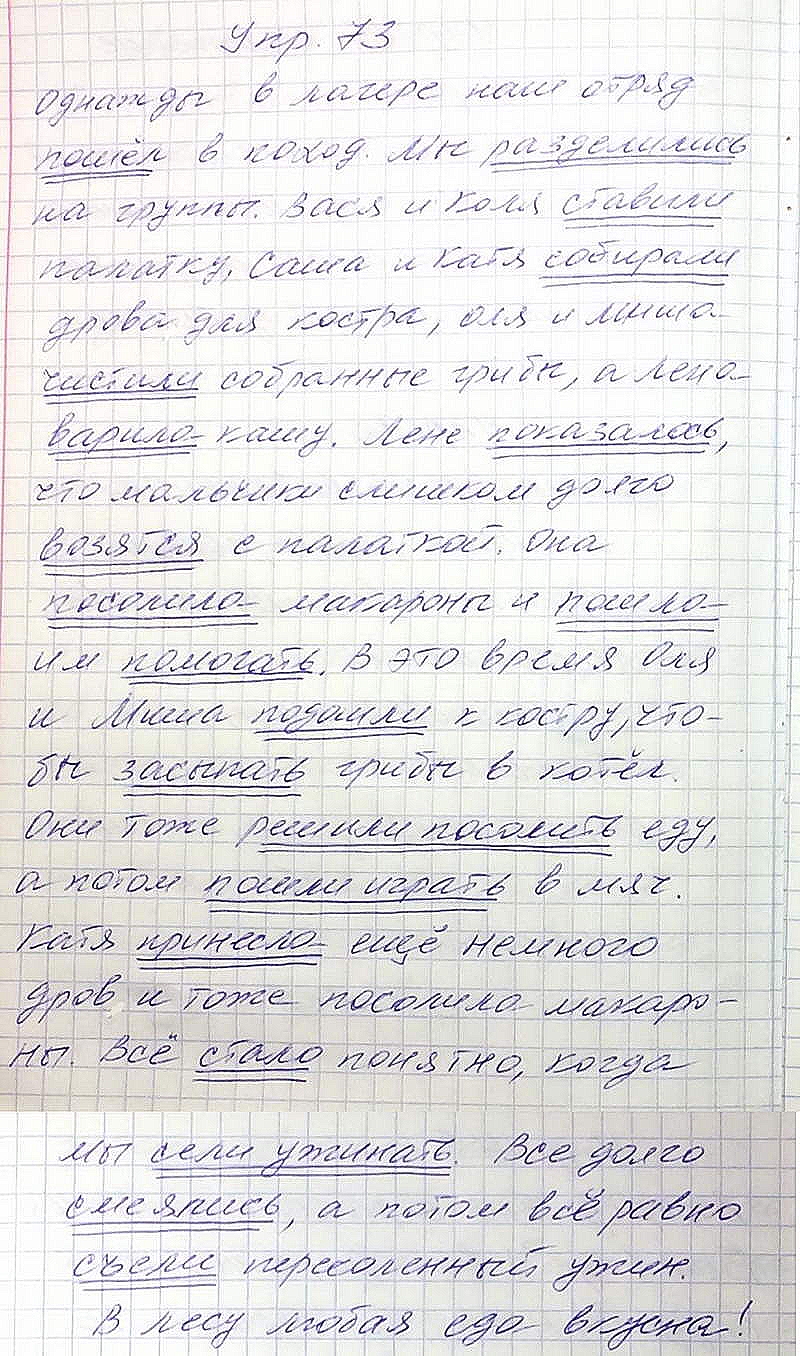 Упр. 73
Однажды в лагере наш отряд
пошёл в поход. Мы разделились
на группы. Вася и Коля ставили
палатку, Саша и Катя собирали
дрова для костра, Оля и Миша
чистили собранные грибы, а Лена
варила кашу. Лене показалось,
что мальчики слишком долго
возятся с палаткой. Она
посолила макароны и пошла
им помогать. В это время Оля
и Миша подошли к костру, что-
бы засыпать грибы в котёл.
Они тоже решили посолить еду,
а потом пошли играть в мяч.
Катя принесла ещё немного
дров и тоже посолила макаро-
ны. Всё стало понятно, когда
мы сели ужинать. Все долго
смеялись, а потом всё равно
съели пересоленный ужин.
В лесу любая еда вкусна!